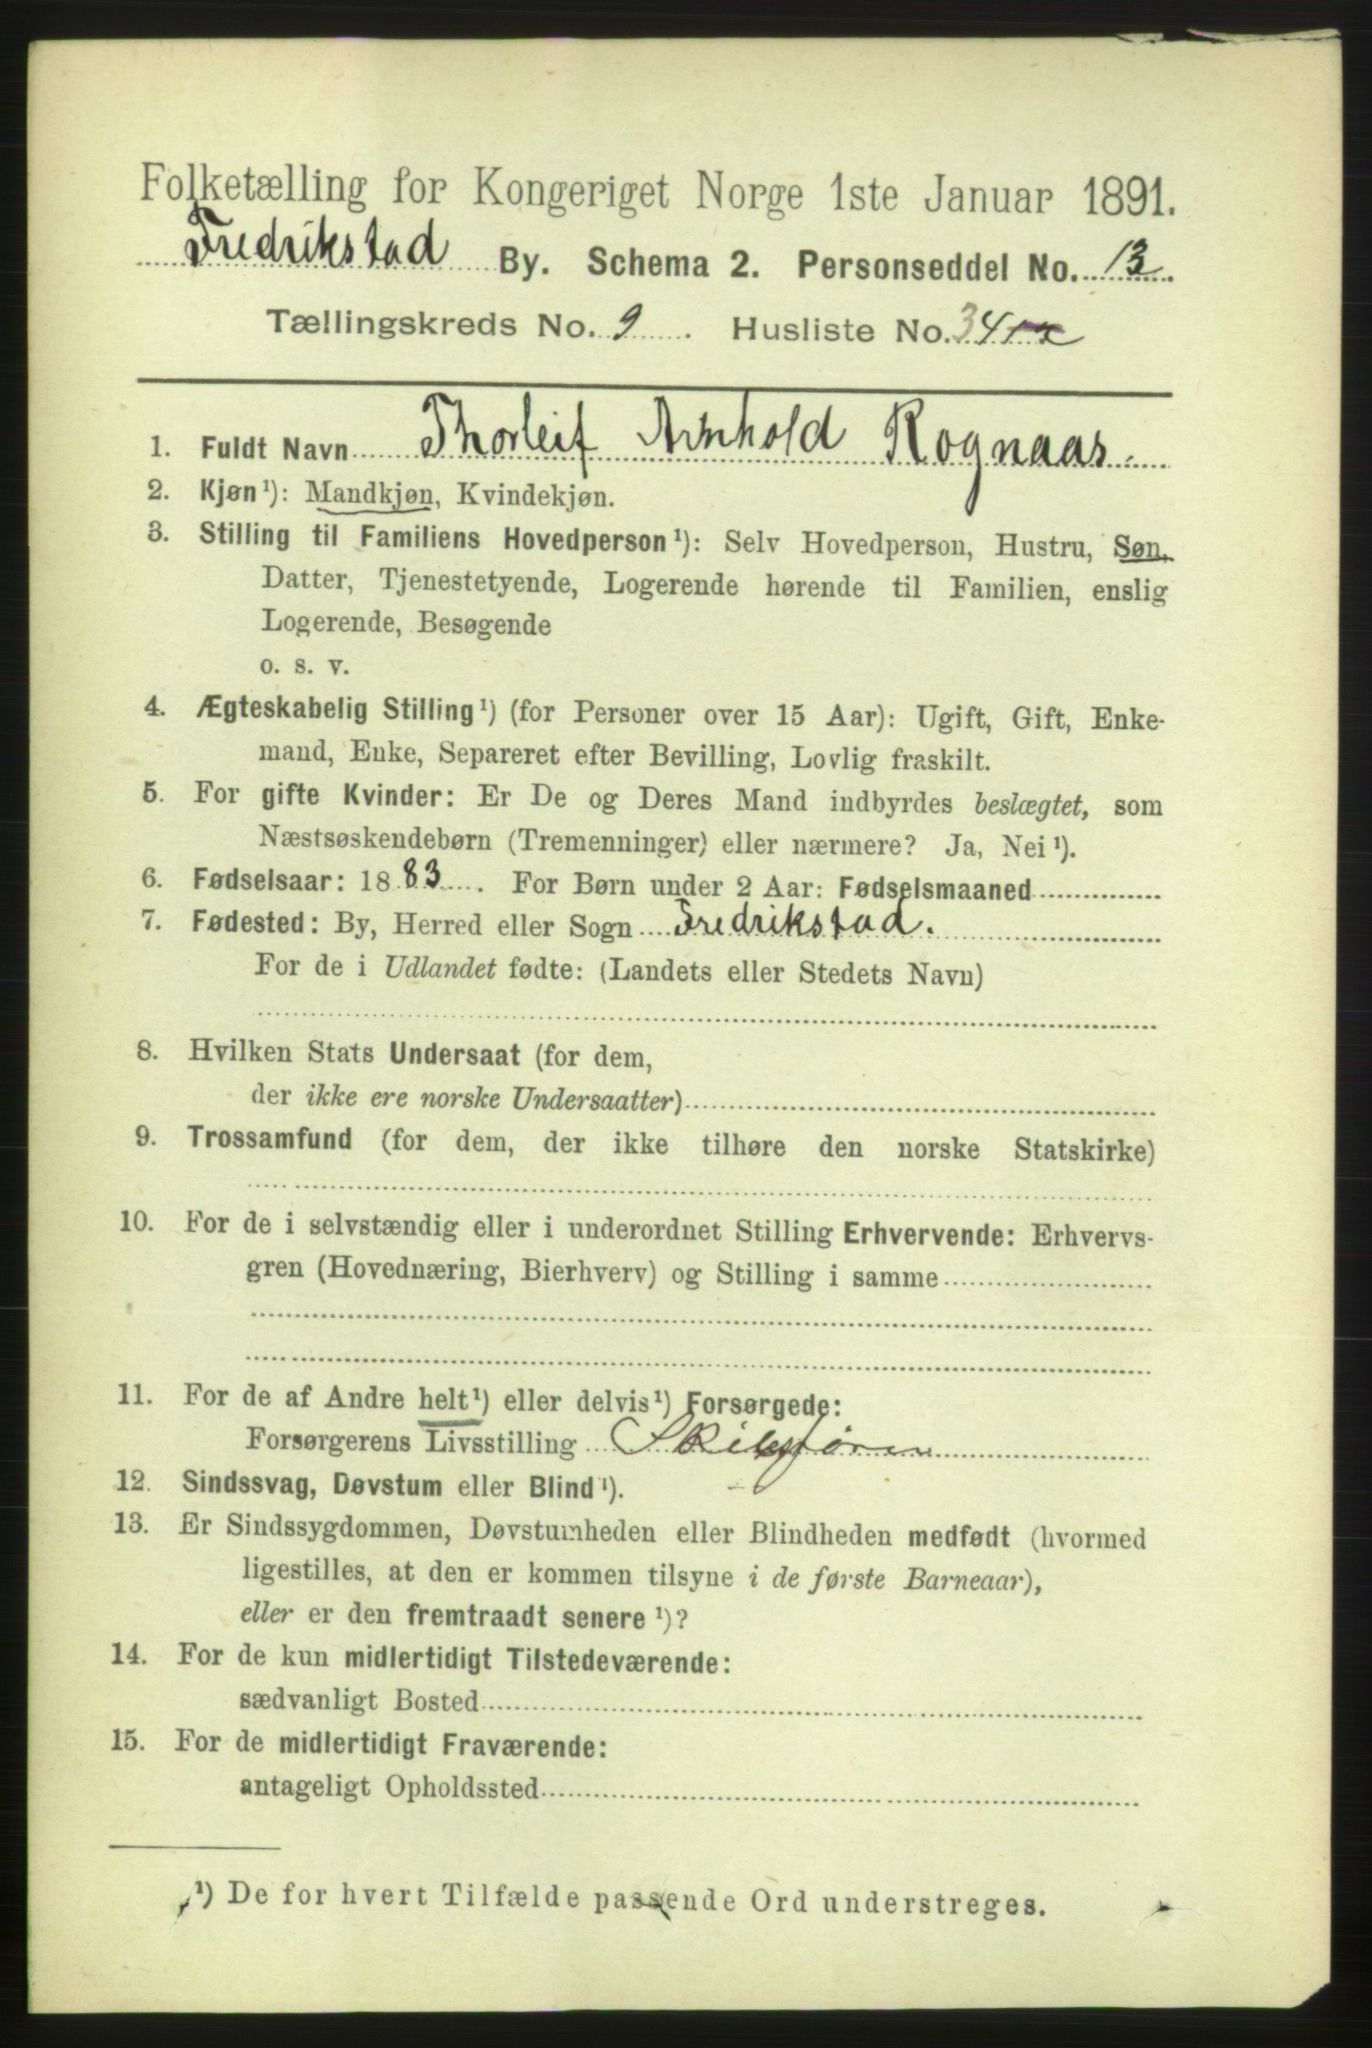 Folketælling for Kongeriget Norge 1ste Januar 1891.
Fredrikstad By. Schema 2. Personseddel No. 13
Tællingskreds No. 9. Husliste No. 34
1. Fuldt Navn Thorleif Arnhold Rognaas.
2. Kjøn¹): Mandkjøn, Kvindekjøn.
3. Stilling til Familiens Hovedperson¹): Selv Hovedperson, Hustru, Søn,
Datter, Tjenestetyende, Logerende hørende til Familien, enslig
Logerende, Besøgende
o. s. v.
4. Ægteskabelig Stilling¹) (for Personer over 15 Aar): Ugift, Gift, Enke-
mand, Enke, Separeret efter Bevilling, Lovlig fraskilt.
5. For gifte Kvinder: Er De og Deres Mand indbyrdes beslægtet, som
Næstsøskendebørn (Tremenninger) eller nærmere? Ja, Nei¹).
6. Fødselsaar: 1883. For Børn under 2 Aar: Fødselsmaaned
7. Fødested: By, Herred eller Sogn Fredrikstad.
For de i Udlandet fødte: (Landets eller Stedets Navn)
8. Hvilken Stats Undersaat (for dem,
der ikke ere norske Undersaatter)
9. Trossamfund (for dem, der ikke tilhøre den norske Statskirke)
10. For de i selvstændig eller i underordnet Stilling Erhvervende: Erhvervs-
gren (Hovednæring, Bierhverv) og Stilling i samme
11. For de af Andre helt¹) eller delvis¹) Forsørgede:
Forsørgerens Livsstilling Skibsfører
12. Sindssvag, Døvstum eller Blind¹).
13. Er Sindssygdommen, Døvstumheden eller Blindheden medfødt (hvormed
ligestilles, at den er kommen tilsyne i de første Barneaar),
eller er den fremtraadt senere¹)?
14. For de kun midlertidigt Tilstedeværende:
sædvanligt Bosted
15. For de midlertidigt Fraværende:
antageligt Opholdssted
¹) De for hvert Tilfælde passende Ord understreges.